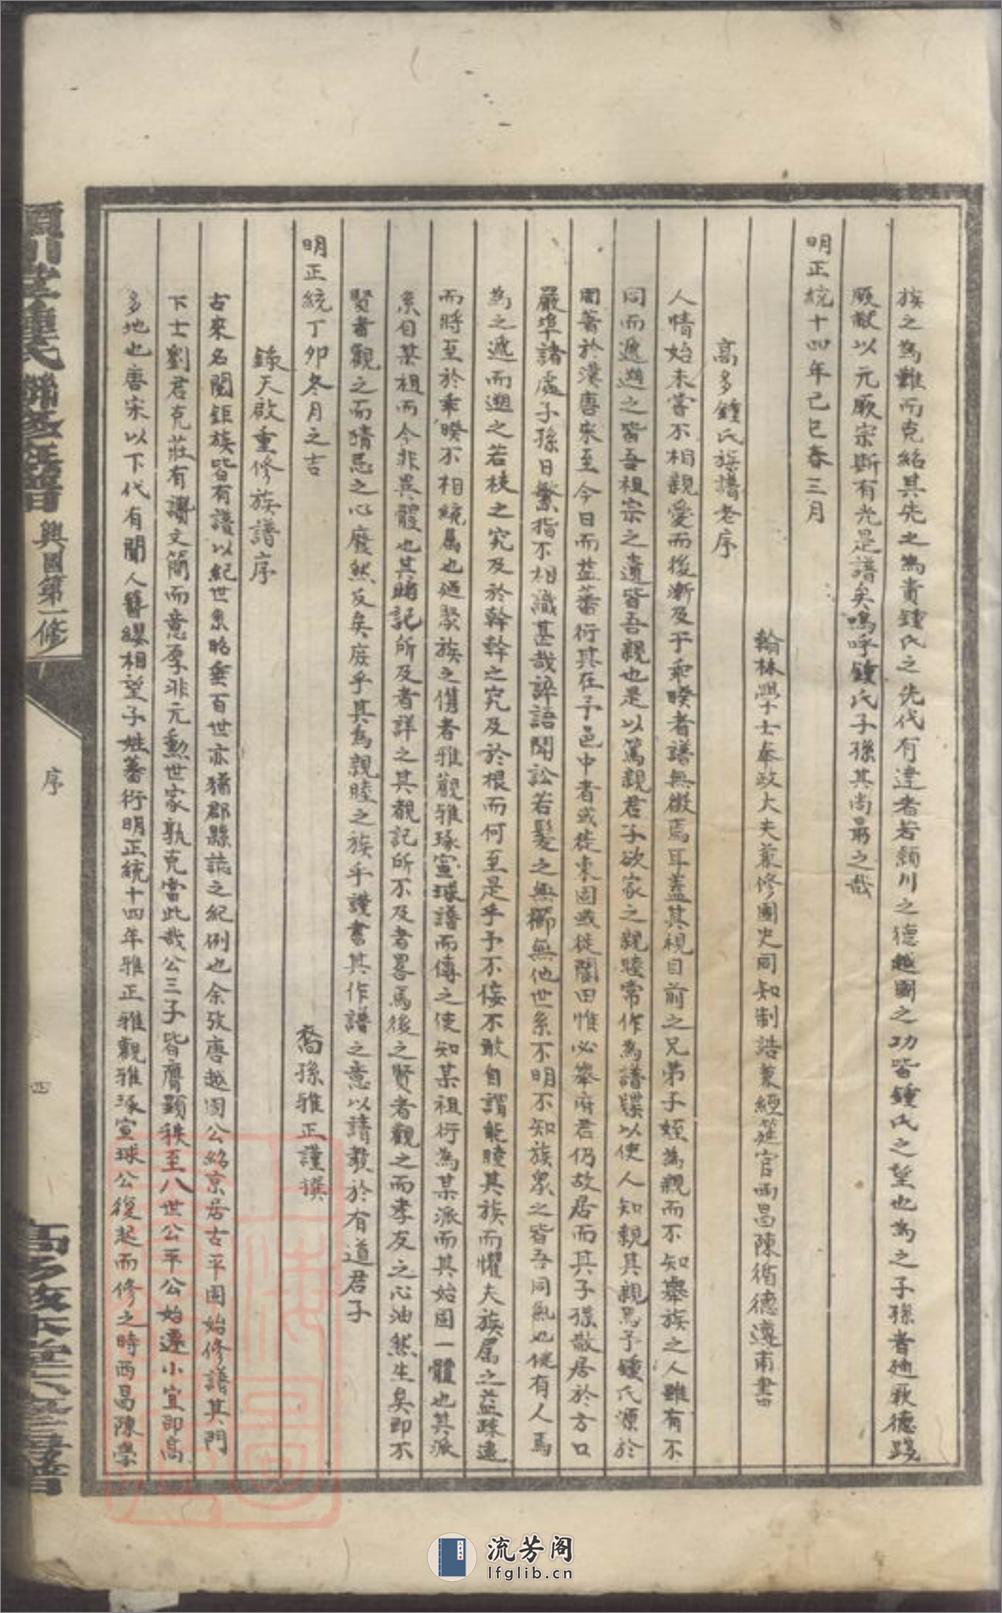 族之為難而克紹其先之為貴鍾氏之先代有達者若潁川之德越國之功皆鍾氏之望也為之子孫者迪敦德踐
厥猷以元厥宗斯有光是譜矣嗚呼鍾氏子孫其尚勗之哉
明正統十四年己巳春三月
翰林學士奉政大夫兼修國史同知制誥兼經筵官西昌陳循德遵甫書
高多鍾氏族譜老序
人情始未嘗不相親愛而後漸及于乖暌者譜無徵焉耳蓋其視目前之兄弟子姪為親而不知舉族之人雖有不
同而遞遡之皆吾祖宗之遺皆吾親也是以篤親君子欲家之親睦常作為譜牒以使人知親其親焉予鍾氏源於
周著於漢唐宋至今日而益蕃衍其在予邑中者或徙東固或徙閣田惟必舉府君仍故居而其子孫散居於方口
嚴埠諸處子孫日繁指不相識甚哉誶語鬩訟若髮之無櫛無他世系不明不知族眾之皆吾同氣也使有人焉
為之遞而遡之若枝之究及於幹幹之究及於根而何至是乎予不佞不敢自謂能睦其族而懼夫族屬之益疎遠
而時至於乖暌不相統屬也迺聚族之儁者雅觀雅琢宣球譜而傳之使知某祖衍為某派而其始固一體也其派
系自某祖而今非異體也其賭記所及者詳之其覩記所不及者畧焉後之賢者觀之而孝友之心油然生矣即不
賢者觀之而猜忌之心廢然反矣庶乎其為親睦之族乎謹書其作譜之意以請教於有道君子
明正統丁卯冬月之吉
裔孫雅正謹撰
錄天啟重修族譜序
古來名閥鉅族皆有譜以紀世系昭垂百世亦猶郡縣誌之紀例也余攷唐越國公紹京居古平固始修譜其門
下士劉君克莊有讚文簡而意厚非元勲世家孰克當此哉公三子皆膺顯秩至八世公平公始遷小宜即高
多地也唐宋以下代有聞人簪纓相望子姓蕃衍明正統十四年雅正雅觀雅琢宣球公復起而修之時西昌陳學
潁川堂鍾氏聯修族譜
興國第一修
序
四
流芳阁
lfglib.cn